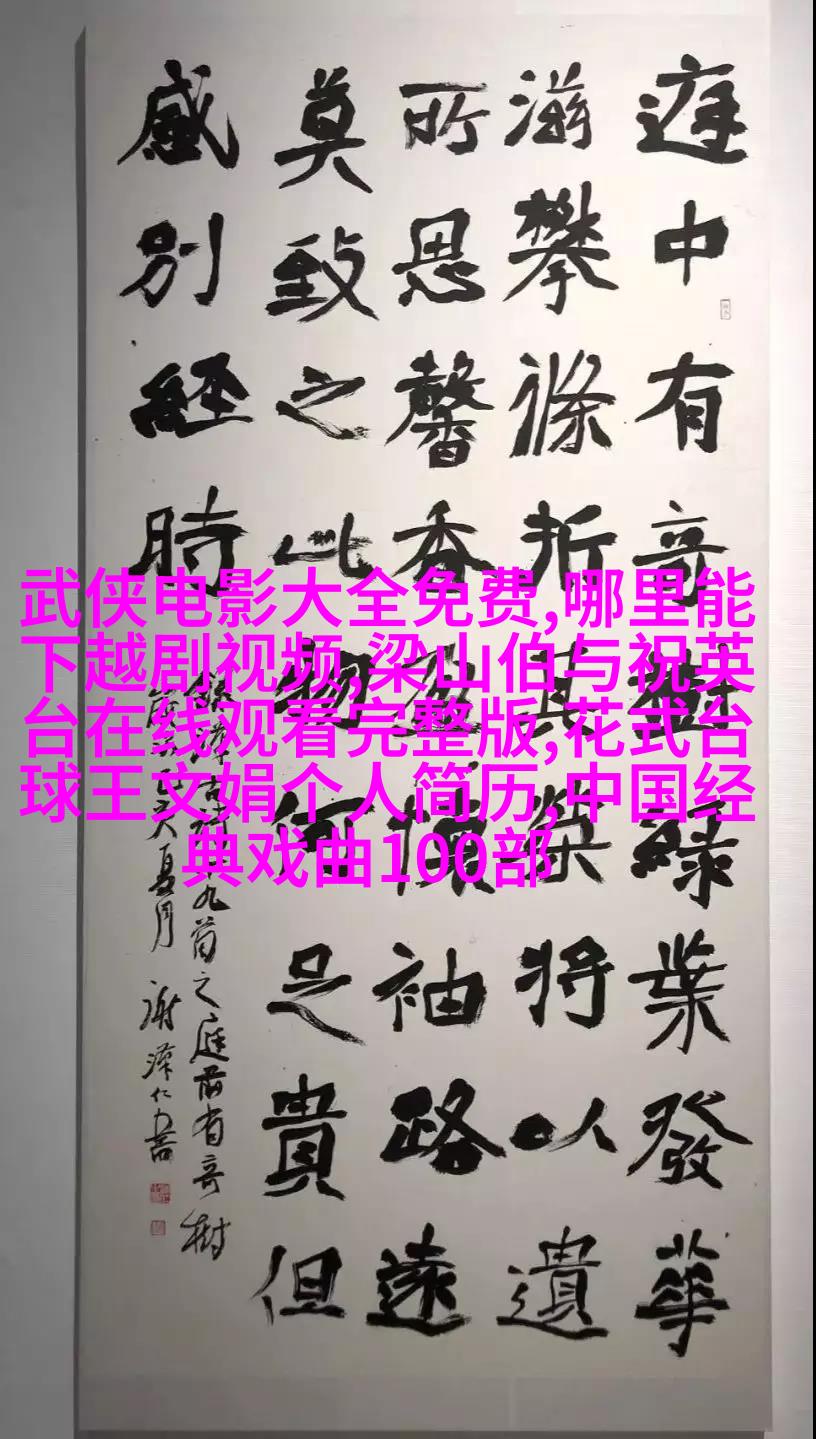 庭中有奇樹綠葉發華
滋攀條折其榮將以遺
所思馨香盈懷袖路遠
莫致之此物何足貴但
感別經時
九首之庭前有奇樹
夏月 謝澤仁書
武侠电影大全免费,哪里能
下越剧视频,梁山伯与祝英
台在线观看完整版,花式台
球王文娟个人简历,中国经
典戏曲100部